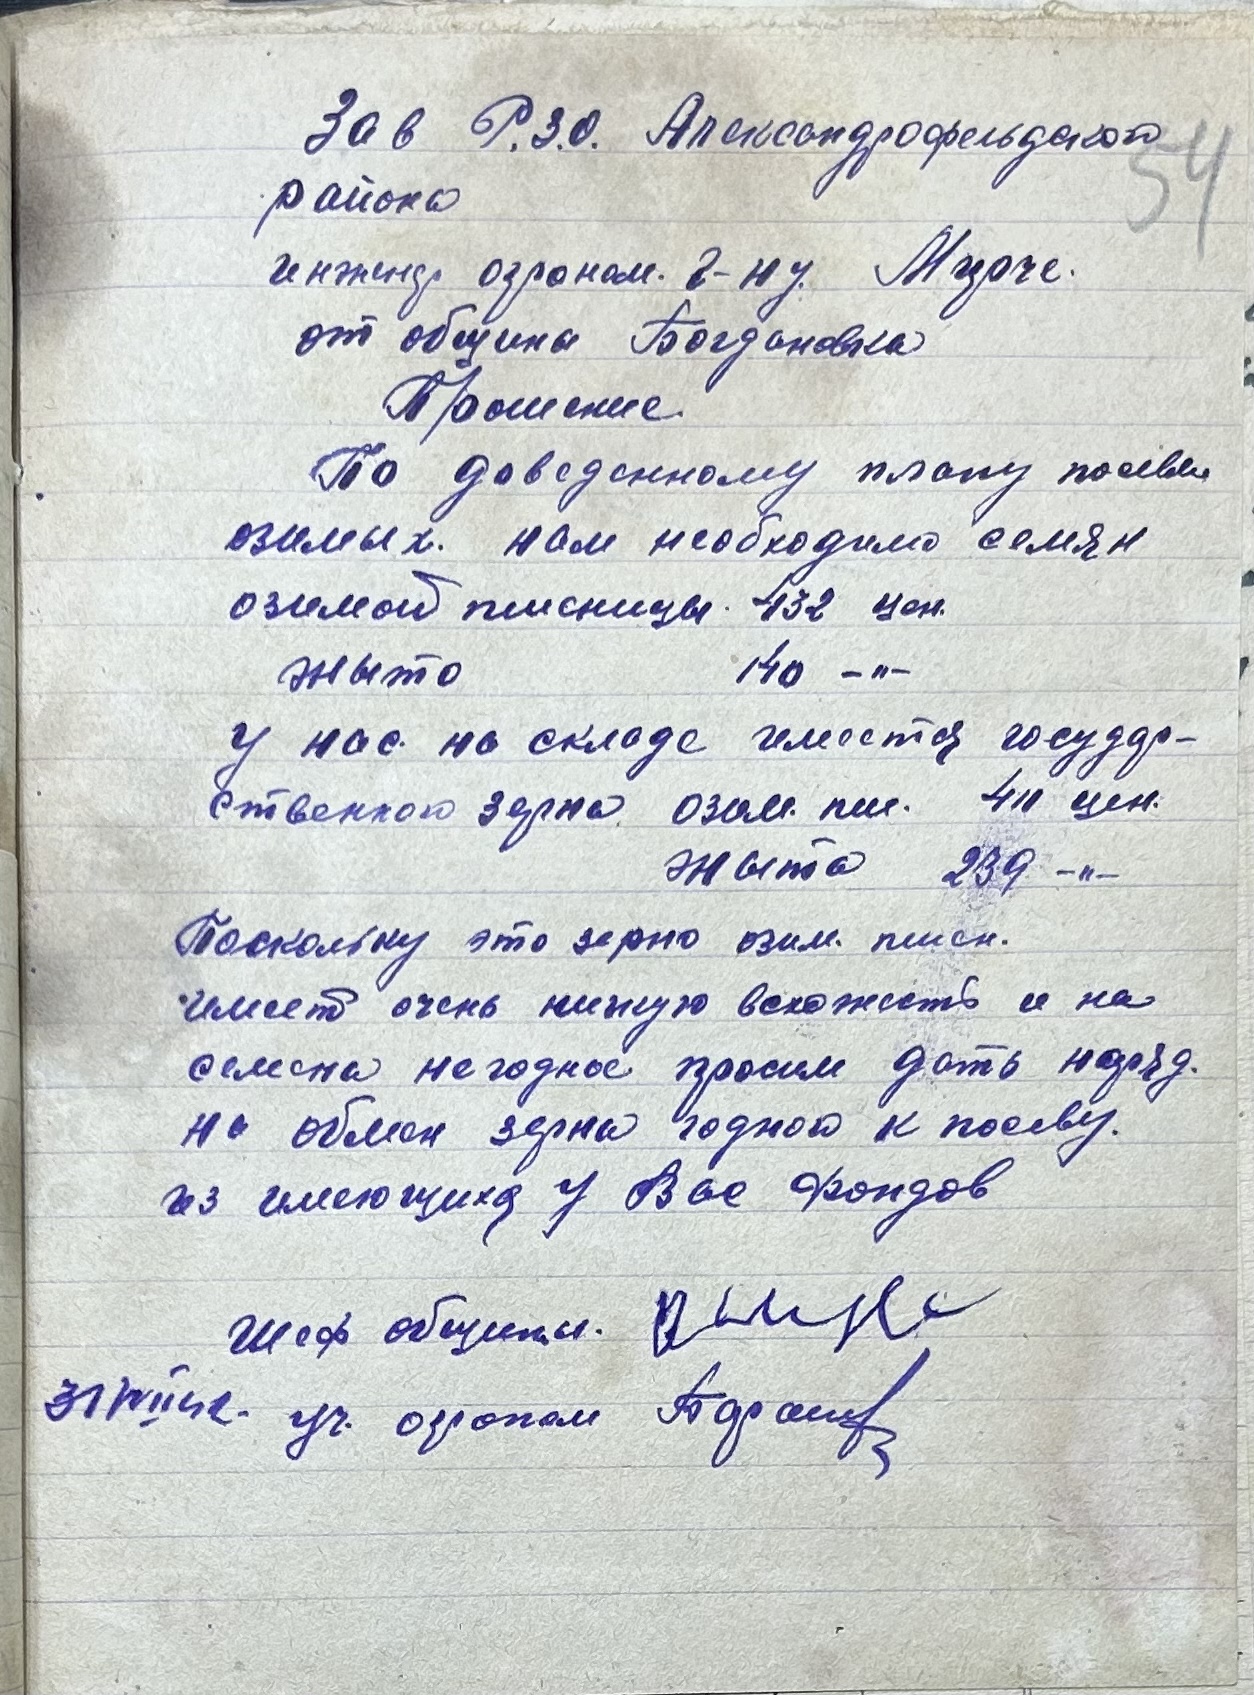 Зав Р.З.О. Александрофельдского
54
района
инженер агроном. г-ну.
от общины Богдановка
Прошение.
По доведенному плану посева
озимых. нам необходимо семян
озимой пшеницы. 432 цен.
жыто 140 -"-
У нас на складе имеется государ-
ственного зерна озим. пш. 411 цен.
жыта 239 -"-
Поскольку это зерно озим. пшен.
имеет очень низкую всхожесть и на
семена негодное просим дать наряд.
на обмен зерна годного к посеву.
из имеющихся у Вас фондов
Шеф общины.
31/VIII 42. уч. агроном